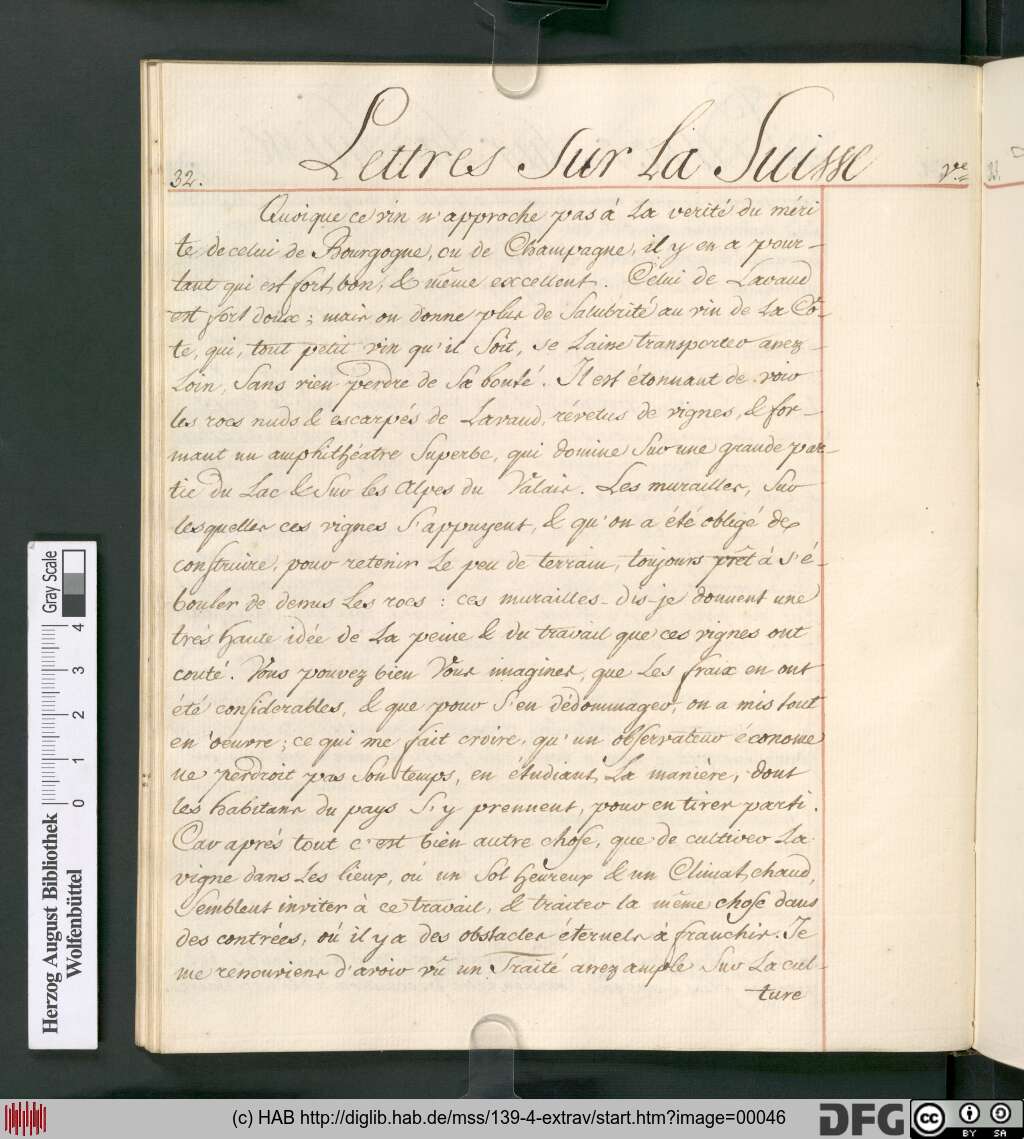 Lettres Sur La Suisse
32. V.e
Quoique ce vin n'approche pas á La verité du méri
te de celui de Bourgogne, ou de Champagne, il y en a pour-
tant qui est fort bon, & même excellent. Celui de Lavaud
est fort doux; mais on donne plus de Salubrité au vin de La Cô-
te, qui, tout petit vin qu'il Soit, se Laisse transporter assez
Loin, Sans rien perdre de Sa bonté. Il est étonnant de voir
les rocs nuds & escarpés de Lavaud, révetus de vignes, & for-
mant un amphithéatre Superbe, qui domine Sur une grande par-
tie du Lac & Sur les Alpes du Valais. Les murailles, Sur
lesquelles ces vignes S'appuyent, & qu'on a été obligé de
construire, pour retenir Le peu de terrain, toujours prêt á s'é-
bouler de dessus Les rocs: ces murailles-dis-je donnent une
trés haute idée de La peine & du travail que ces vignes ont
couté. Vous pouvez bien Vous imaginer, que Les fraix en ont
été considerables, & que pour S'en dédommager, on a mis tout
en 'oeuvre; ce qui me fait croire, qu'un observateur économe
ne perdroit pas Son temps, en étudiant La manière, dont
les habitans du pays S'y prennent, pour en tirer parti.
Car aprés tout c'est bien autre chose, que de cultiver La
vigne dans Les lieux, oú un Sol heureux & un Climat chaud,
Semblent inviter à ce travail, & traiter la même chose dans
des contrées, oú il y a des obstacles éternels à franchir. Je
me ressouviens d'avoir vû un Traité assez ample Sur La cul-
ture
33.
Gray Scale
0 1 2 3 4
Herzog August Bibliothek
Wolfenbüttel
(c) HAB http://diglib.hab.de/mss/139-4-extrav/start.htm?image=00046
DFG
cc BY SA